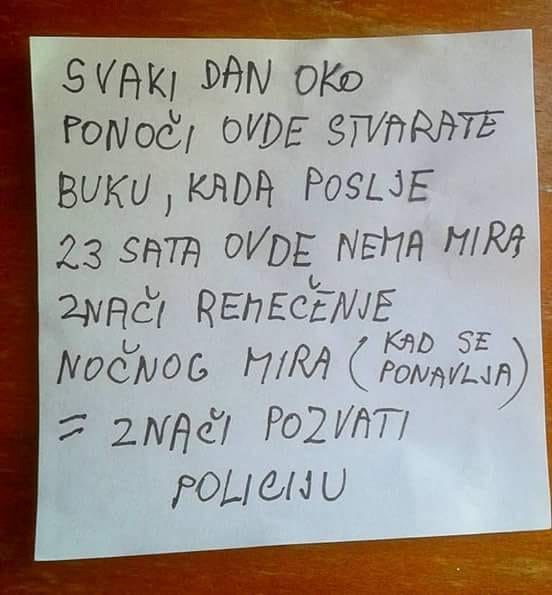 SVAKI DAN OKO
PONOČI OVDE STVARATE
BUKU, KADA POSLJE
23 SATA OVDE NEMA MIRA
ZNAČI REMEČĚNJE
NOČNOG MIRA (KAD SE PONAVLJA)
= ZNAČI POZVATI
POLICIJU